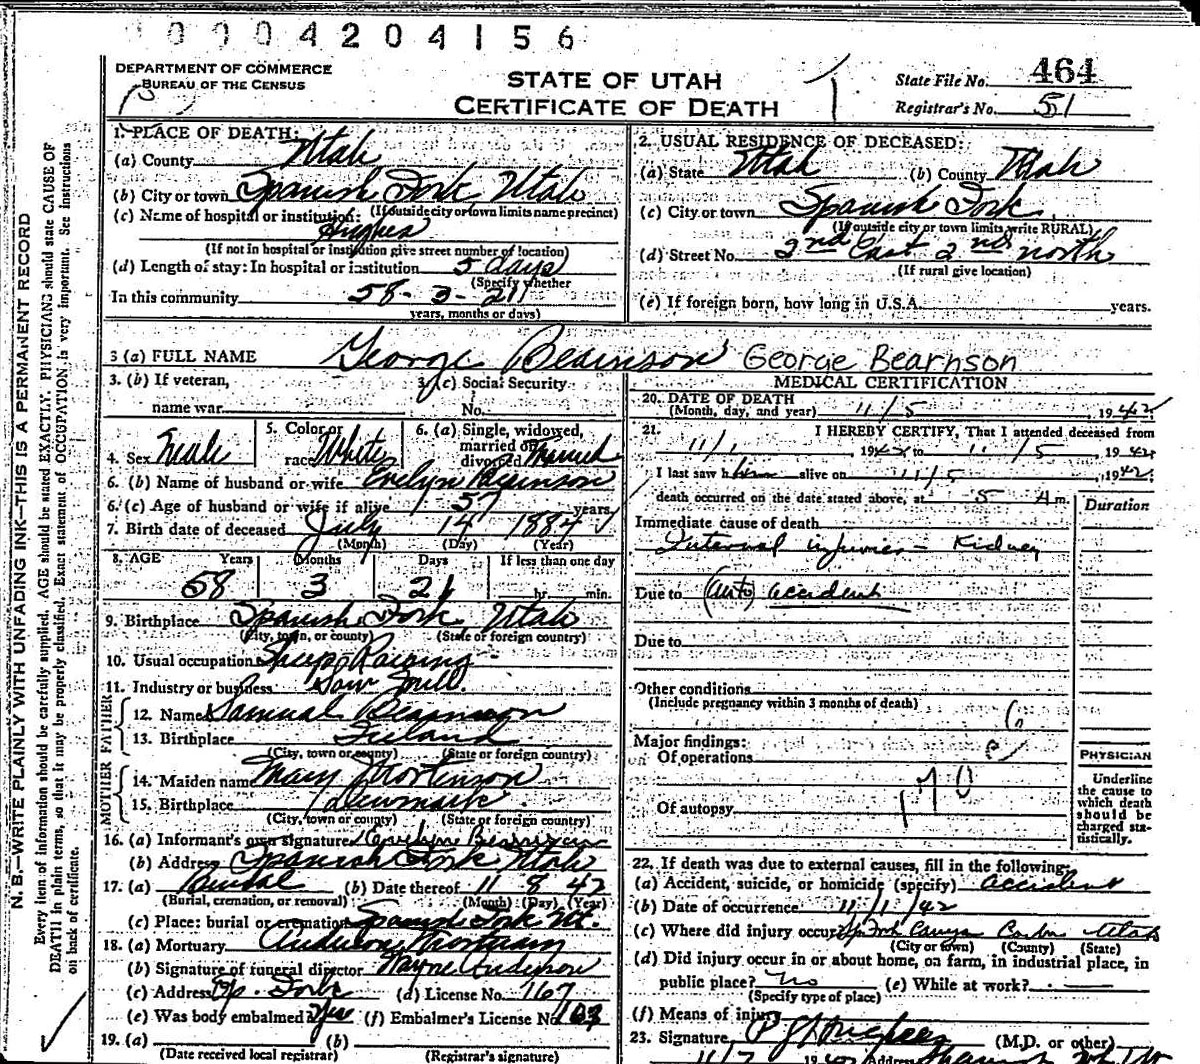 0004204156
DEPARTMENT OF COMMERCE
BUREAU OF THE CENSUS
STATE OF UTAH
CERTIFICATE OF DEATH
State File No. 464
Registrar's No. 51
1. PLACE OF DEATH:
(a) County Utah
(b) City or town Spanish Fork, Utah
(If outside city or town limits name precinct)
(c) Name of hospital or institution:
Hughes
(If not in hospital or institution give street number or location)
(d) Length of stay: In hospital or institution 5 days
(Specify whether
In this community 58-3-21
years, months or days)
2. USUAL RESIDENCE OF DECEASED:
(a) State Utah (b) County Utah
(c) City or town Spanish Fork
(If outside city or town limits, write RURAL)
(d) Street No. 2nd East 2nd north
(If rural give location)
(e) If foreign born, how long in U.S.A. years.
3 (a) FULL NAME George Bearnson George Bearnson
3. (b) If veteran,
name war
3. (c) Social Security
No.
4. Sex Male
5. Color or
race White
6. (a) Single, widowed,
married or
divorced Married
6. (b) Name of husband or wife Evelyn Bearnson
6. (c) Age of husband or wife if alive 57 years
7. Birth date of deceased July 14 1884
(Month) (Day) (Year)
8. AGE Years Months Days If less than one day
58 3 21 hr. min.
9. Birthplace Spanish Fork, Utah
(City, town, or county) (State or foreign country)
10. Usual occupation Sheep Raising
11. Industry or business Saw Mill
FATHER
12. Name Samual Bearnson
13. Birthplace
(City, town or county) (State or foreign country)
MOTHER
14. Maiden name Mary Mortinson
15. Birthplace Denmark
(City, town or county) (State or foreign country)
16. (a) Informant's own signature Evelyn Bearnson
(b) Address Spanish Fork Utah
17. (a) Burial (b) Date thereof 11 8 42
(Burial, cremation, or removal) (Month) (Day) (Year)
(c) Place: burial or cremation Spanish Fork Ut.
18. (a) Mortuary Anderson Mortuary
(b) Signature of funeral director Wayne Anderson
(c) Address Sp. Fork (d) License No. 167
(e) Was body embalmed? Yes (f) Embalmer's License No.
19. (a) (b)
(Date received local registrar) (Registrar's signature)
MEDICAL CERTIFICATION
20. DATE OF DEATH
(Month, day, and year) 11/5, 1942
21. I HEREBY CERTIFY, That I attended deceased from
11/1, 1942 to 11/5, 1942
I last saw him alive on 11/5, 1942.
death occurred on the date stated above, at 5 A m.
Duration
Immediate cause of death
Internal injuries - Kidney
Due to (Auto) accident
Due to
Other conditions
(Include pregnancy within 3 months of death)
Major findings:
Of operations
170
Of autopsy
PHYSICIAN
Underline
the cause to
which death
should be
charged sta-
tistically.
22. If death was due to external causes, fill in the following:
(a) Accident, suicide, or homicide (specify) accident
(b) Date of occurrence 11/1/42
(c) Where did injury occur Sp Fork Canyon Carbon Utah
(City or town) (County) (State)
(d) Did injury occur in or about home, on farm, in industrial place, in
public place? no (e) While at work?
(Specify type of place)
(f) Means of injury
23. Signature (M.D. or other)
11/7 19 Address
N. B.—WRITE PLAINLY WITH UNFADING INK—THIS IS A PERMANENT RECORD
Every item of information should be carefully supplied. AGE should be stated EXACTLY. PHYSICIAN should state CAUSE OF
DEATH in plain terms, so that it may be properly classified. Exact statement of OCCUPATION is very important. See instructions
on back of certificate.